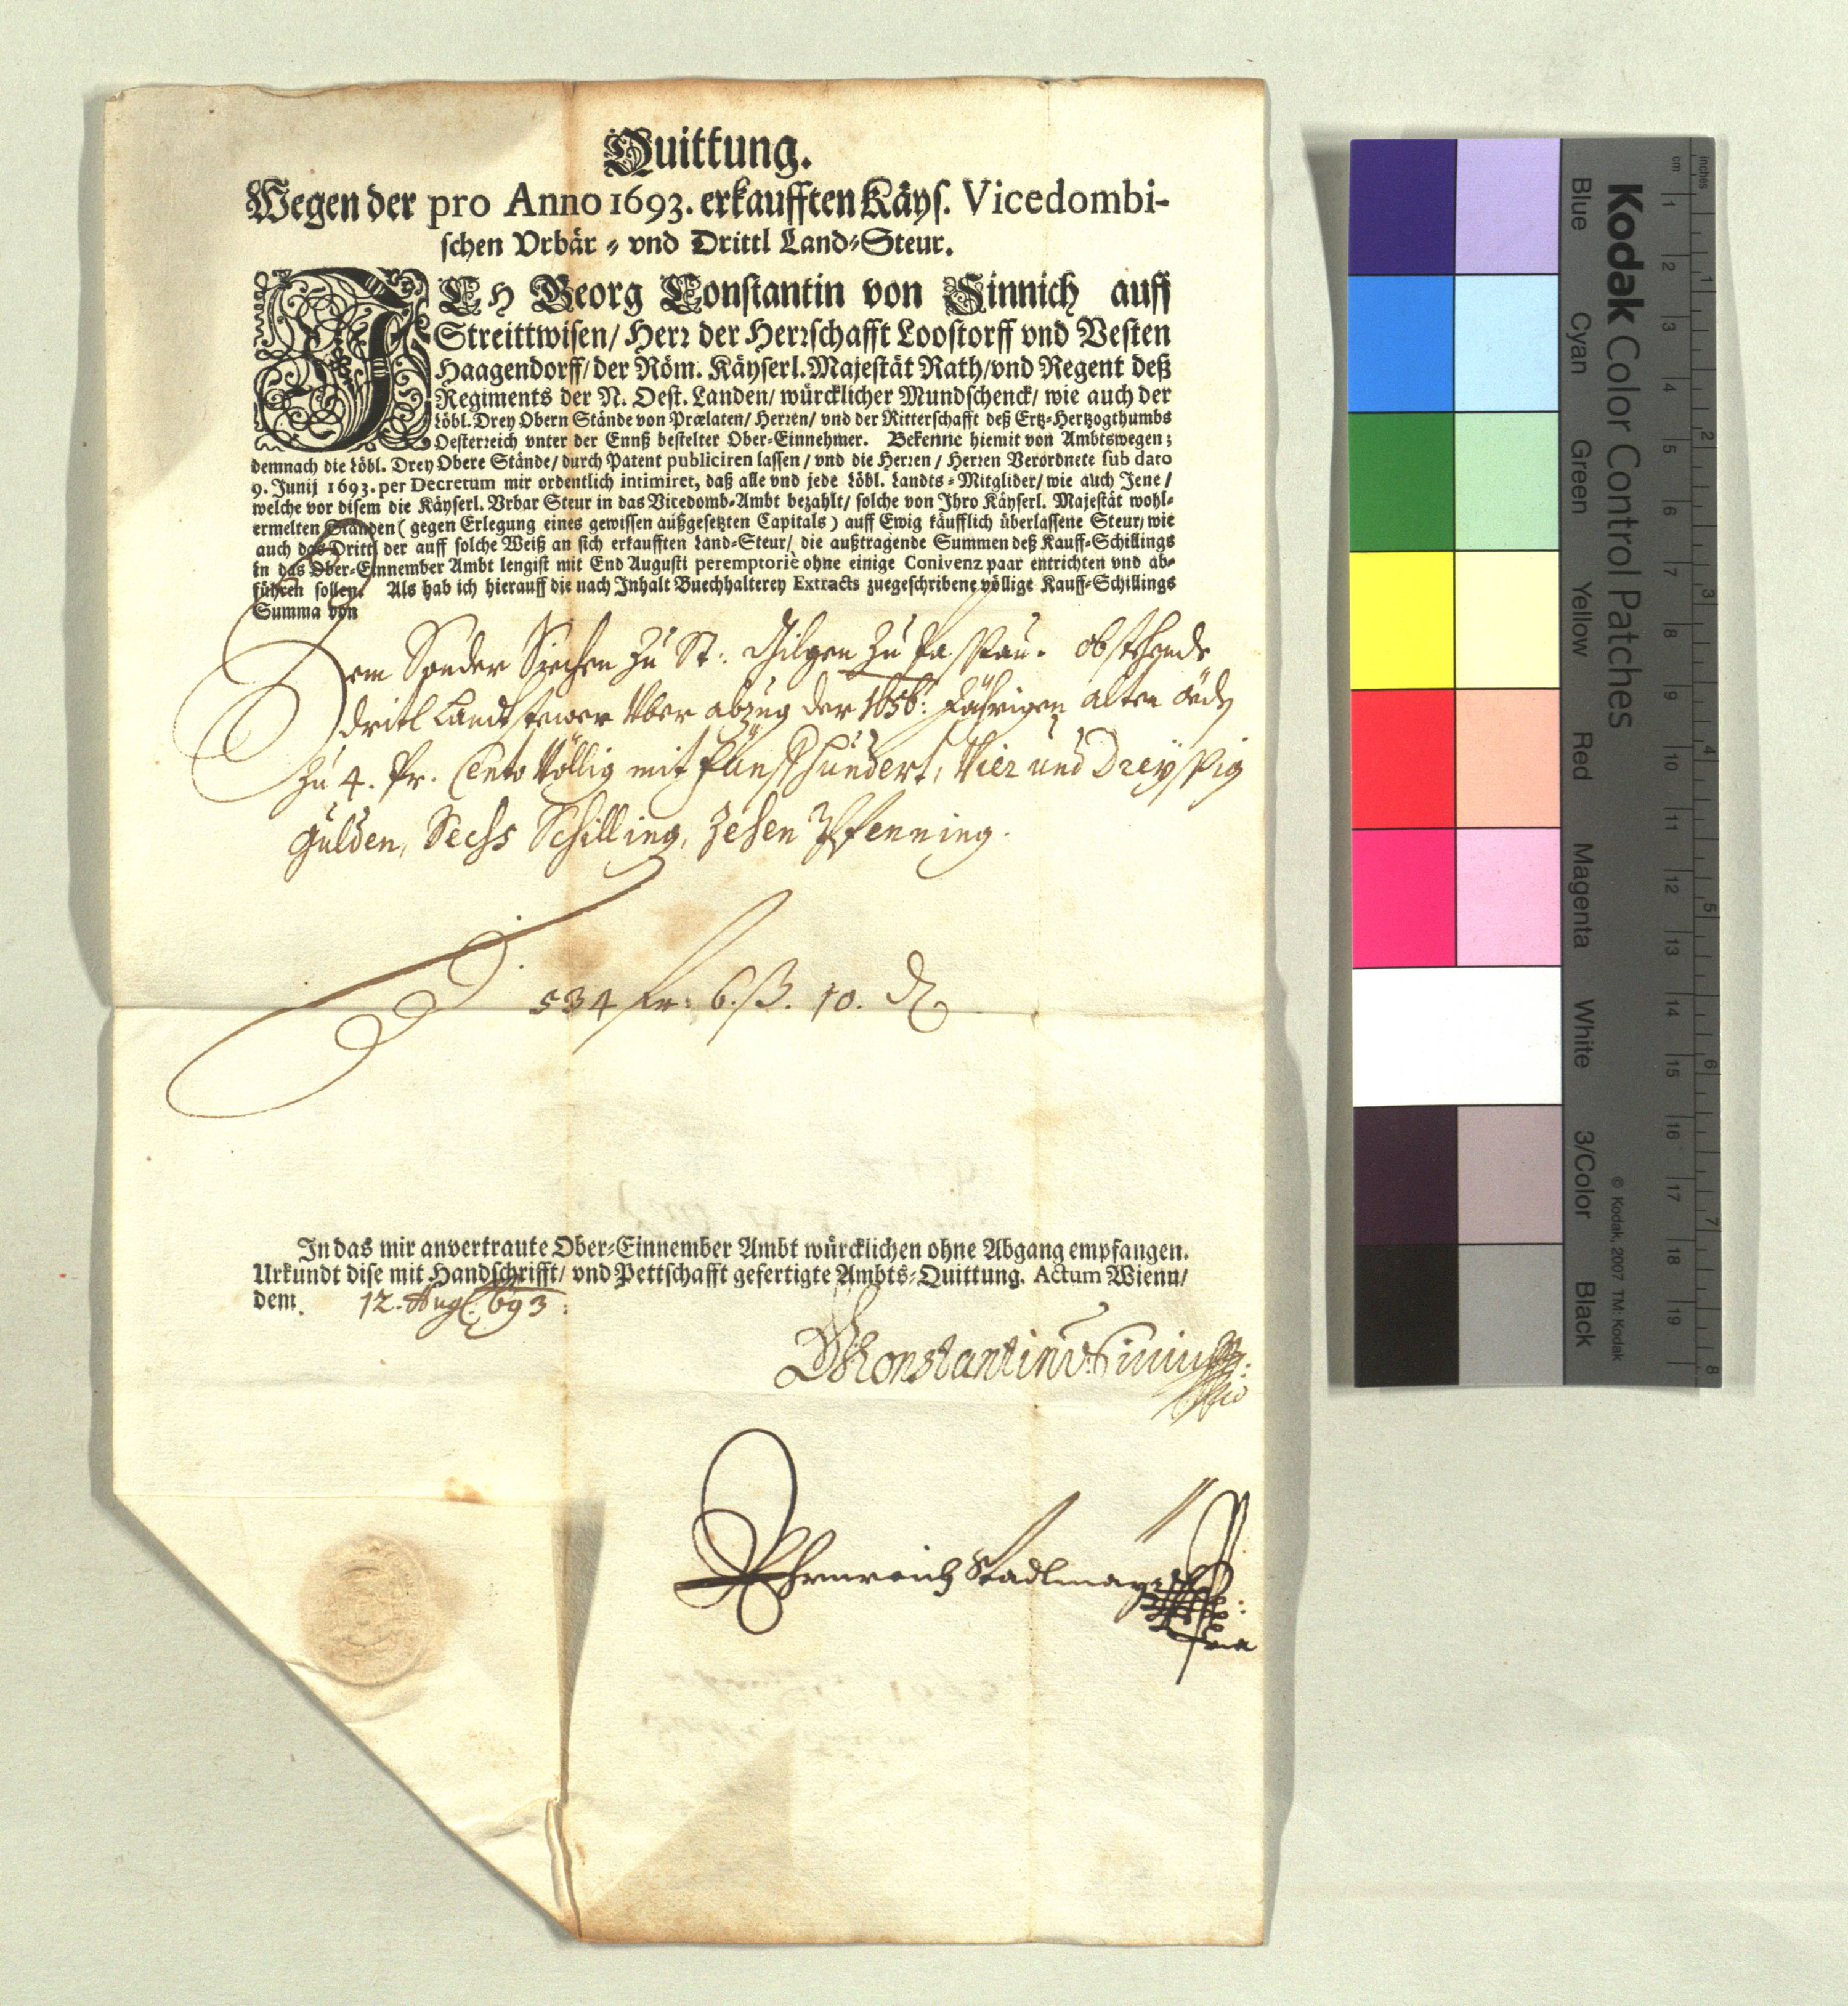 Quittung.
Wegen der pro Anno 1693. erkaufften Käys. Vicedombi-
schen Vrbär- vnd Drittl Land-Steur.
ICH Georg Constantin von Sinnich auff
Streittwisen/ Herr der Herrschafft Loostorff vnd Vesten
Haagendorff/ der Röm. Käyserl. Majestät Rath/ vnd Regent deß
Regiments der N. Oest. Landen/ würcklicher Mundschenck/ wie auch der
Löbl. Drey Obern Stände von Prælaten/ Herren/ vnd der Ritterschafft deß Ertz-Hertzogthumbs
Oesterreich vnter der Ennß bestelter Ober-Einnehmer. Bekenne hiemit von Ambtswegen;
demnach die Löbl. Drey Obere Stände/ durch Patent publiciren lassen/ vnd die Herren/ Herren Verordnete sub dato
9. Junij 1693. per Decretum mir ordentlich intimiret, daß alle vnd jede Löbl. Landts-Mitglider/ wie auch Jene/
welche vor disem die Käyserl. Vrbar Steur in das Vicedomb-Ambt bezahlt/ solche von Ihro Käyserl. Majestät wohl-
ermelten Ständen (gegen Erlegung eines gewissen außgesetzten Capitals) auff Ewig käufflich überlassene Steur/ wie
auch das Drittl der auff solche Weiß an sich erkaufften Land-Steur/ die außtragende Summen deß Kauff-Schillings
in das Ober-Einnember Ambt lengist mit End Augusti peremptoriè ohne einige Conivenz paar entrichten vnd ab-
führen sollen. Als hab ich hierauff die nach Inhalt Buechhalterey Extracts zuegeschribene völlige Kauff-Schillings
Summa von
Dem Sonder Siechen zu St: Gilgen zu Passau. obstehende
dritl Landtsteuer Uber abzug der jährigen alten
zu 4. Pr. Cento Völlig mit Fünffhundert, Vier und Dreyssig
Gulden, Sechs Schilling, zehen Pfenning.
534 fl: 6. ß. 10. d
In das mir anvertraute Ober-Einnember Ambt würcklichen ohne Abgang empfangen.
Urkundt dise mit Handschrifft/ vnd Pettschafft gefertigte Ambts-Quittung. Actum Wienn/
dem. 12. Aug. 693.
GConstantin v Sinnich
Ehrnreich Stadlmayr
Kodak Color Control Patches
Blue Cyan Green Yellow Red Magenta White 3/Color Black
© Kodak, 2007 TM: Kodak
cm 1 2 3 4 5 6 7 8 9 10 11 12 13 14 15 16 17 18 19
inches 1 2 3 4 5 6 7 8